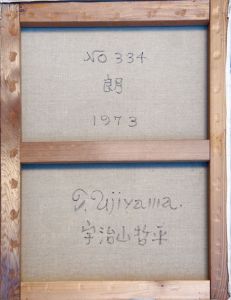 No 334
朗
1973
T. Ujiyama.
宇治山哲平